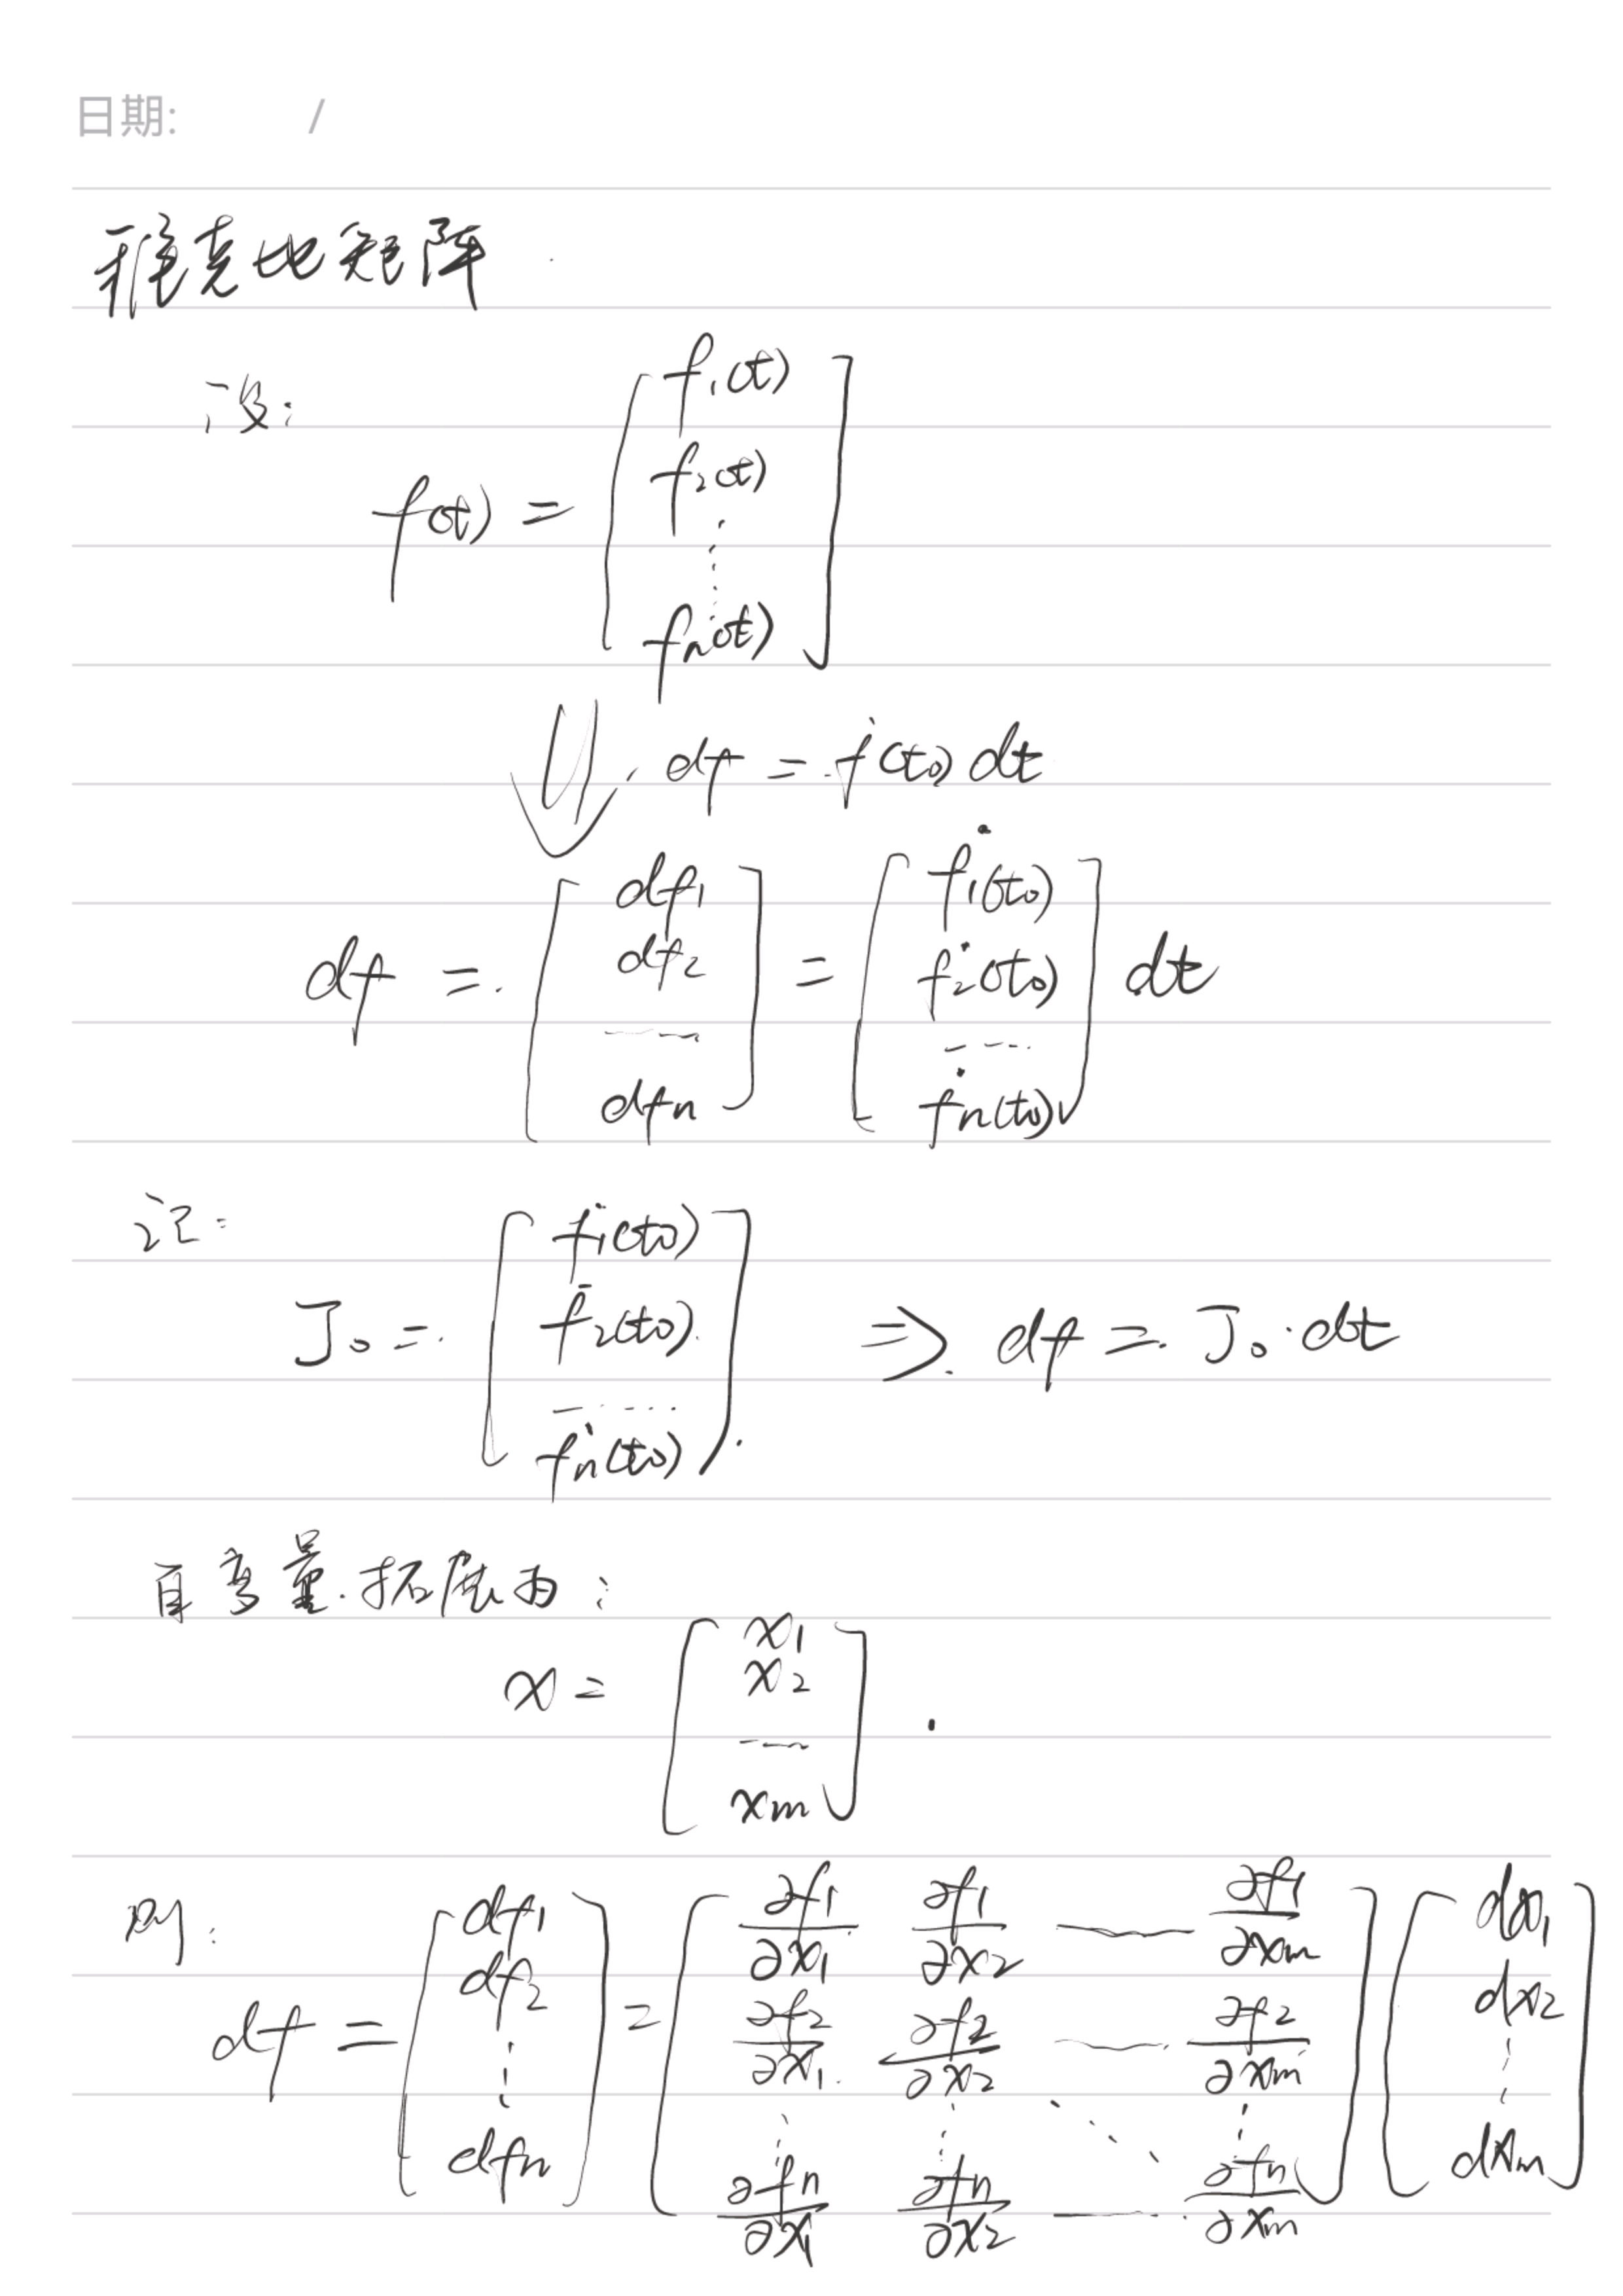 日期: /
雅克比矩阵
设:
f(t) = [ f₁(t) f₂(t) ⋮ fₙ(t) ]
⇓ df = ḟ(t₀) dt
df = [ df₁ df₂ ---- dfₙ ] = [ ḟ₁(t₀) ḟ₂(t₀) ---- ḟₙ(t₀) ] dt
记:
J₀ = [ ḟ₁(t₀) ḟ₂(t₀) ---- ḟₙ(t₀) ] ⇒ df = J₀·dt
自变量拓展为:
x = [ x₁ x₂ ---- xₘ ]
则:
df = [ df₁ df₂ ⋮ dfₙ ] = [ ∂f₁/∂x₁ ∂f₁/∂x₂ —— ∂f₁/∂xₘ ∂f₂/∂x₁ ∂f₂/∂x₂ —— ∂f₂/∂xₘ ⋮ ⋮ ⋱ ⋮ ∂fₙ/∂x₁ ∂fₙ/∂x₂ —— ∂fₙ/∂xₘ ] [ dx₁ dx₂ ⋮ dxₘ ]